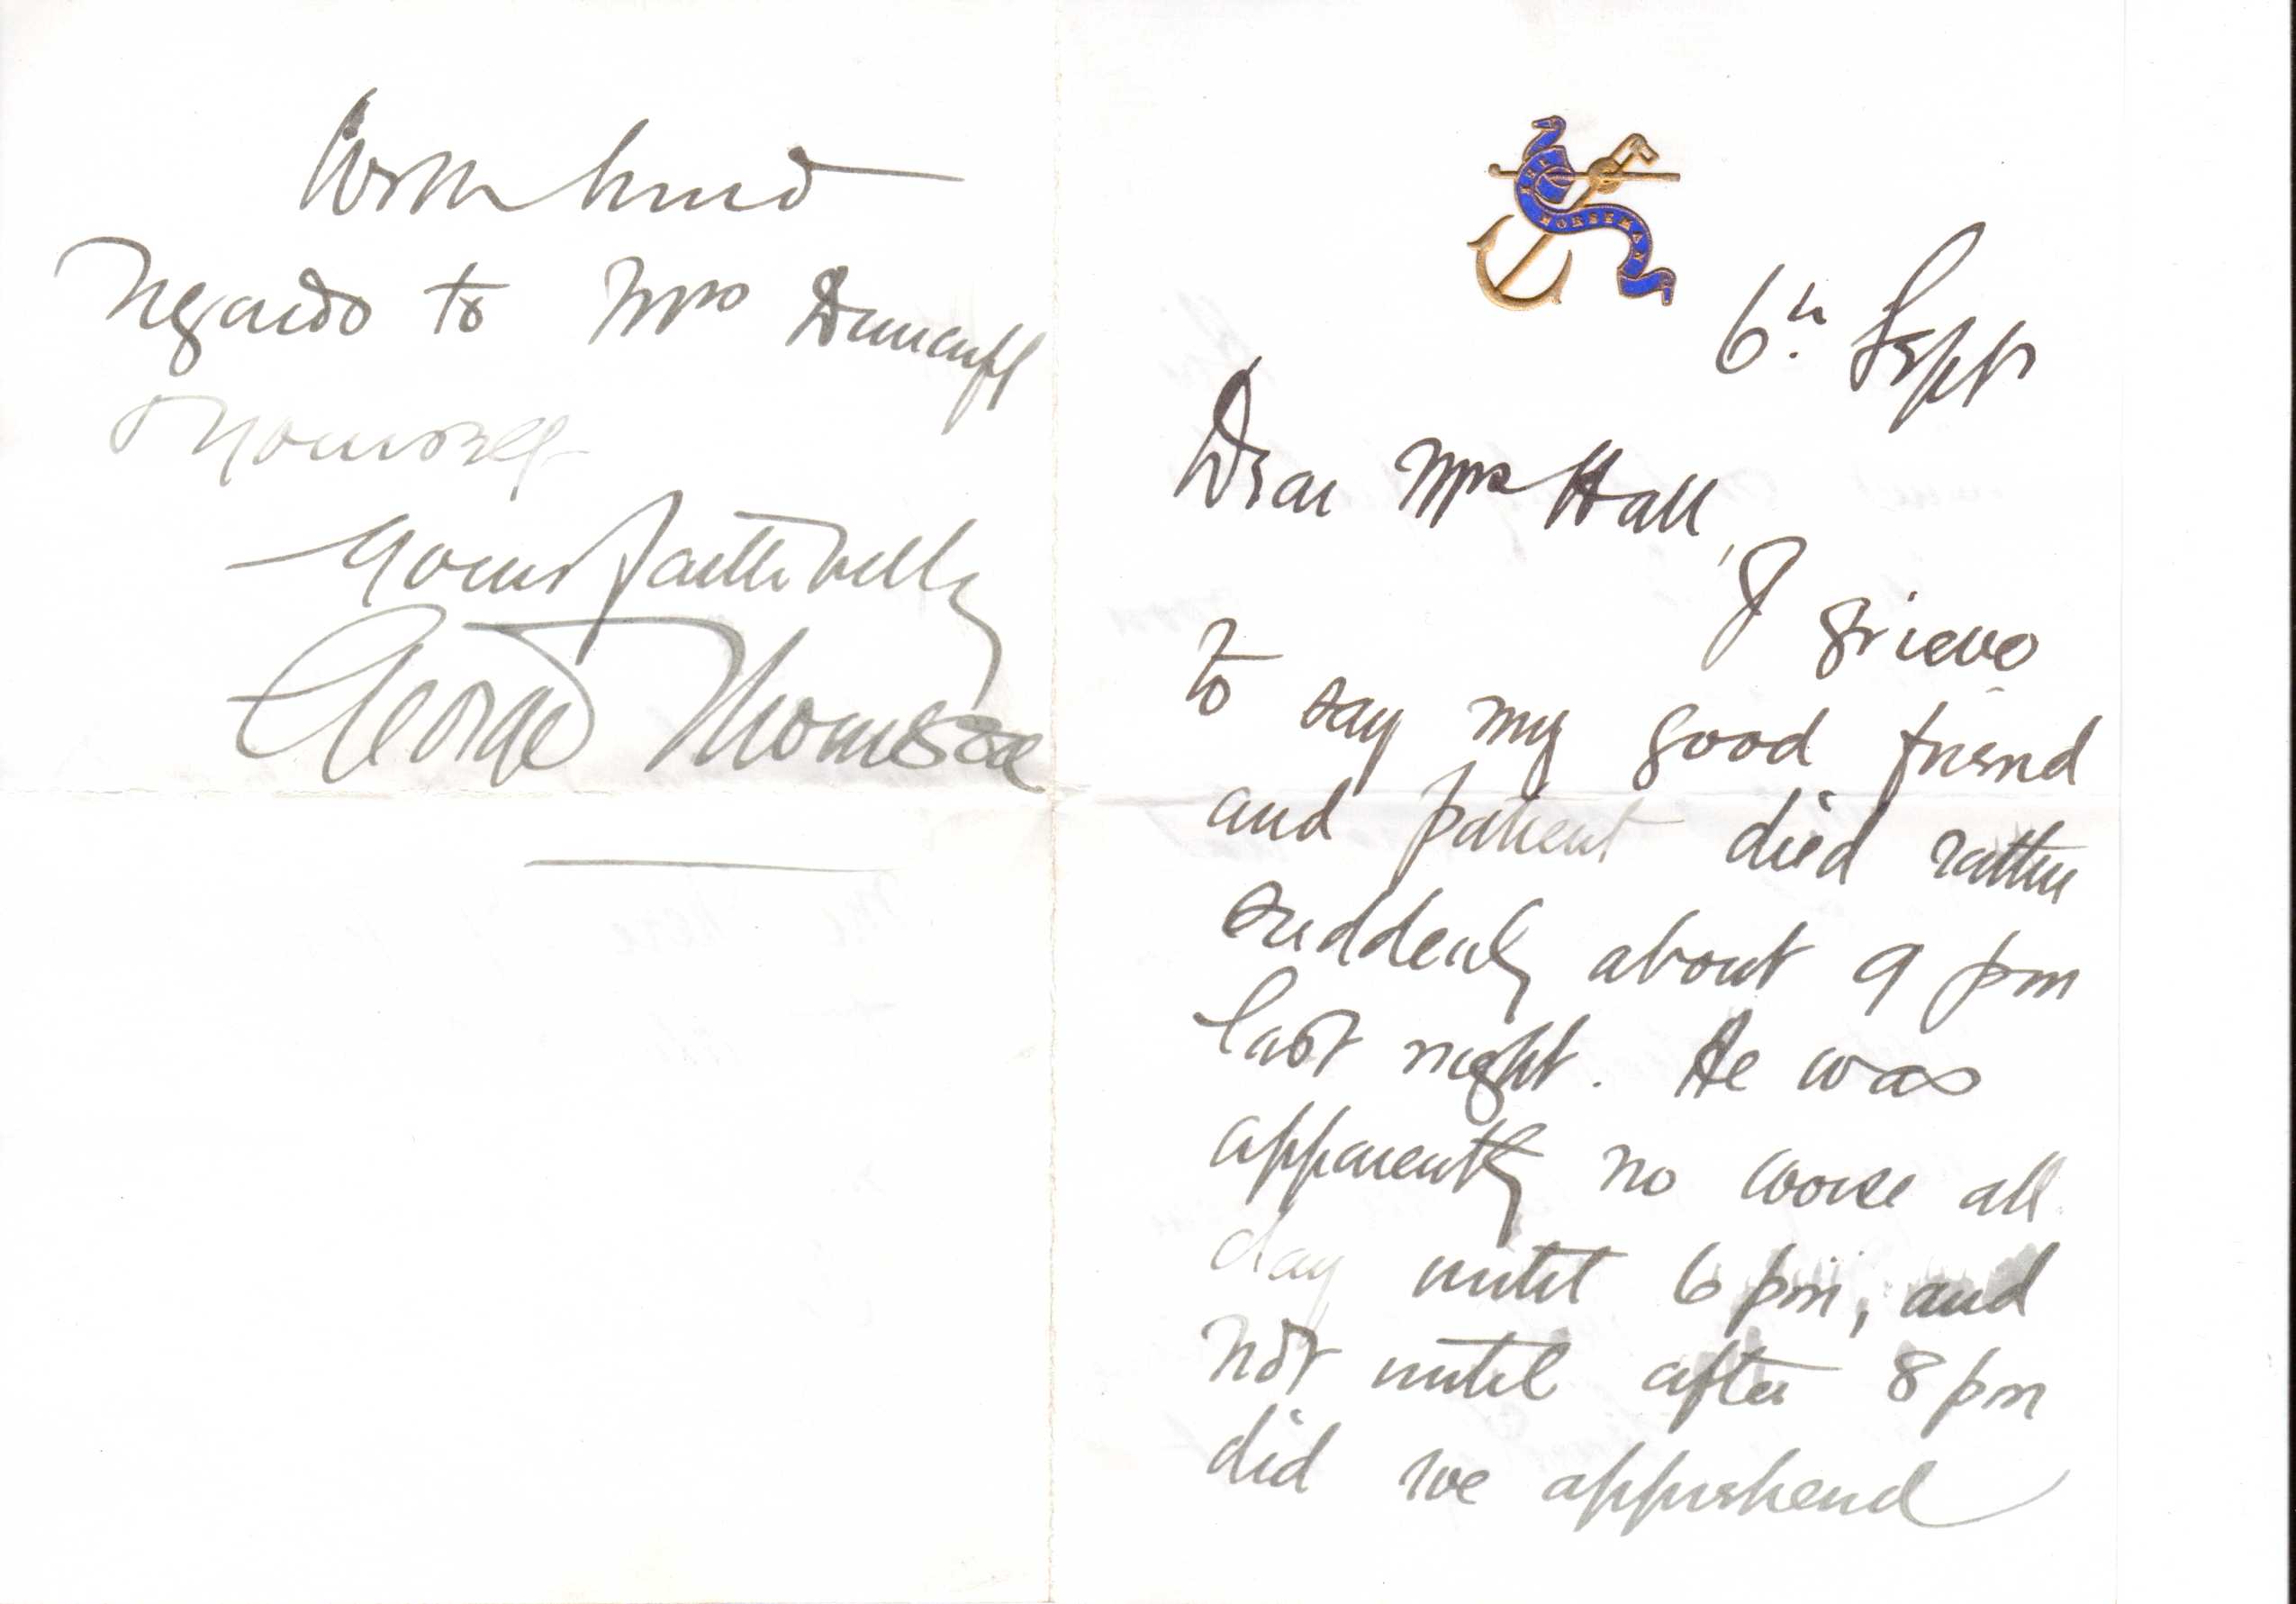 With kind
regards to Mrs Duncuft
& yourself
Yours faithfully
George Thomson
THE
HORSEMAN
6th Sept
Dear Mrs Hall,
I grieve
to say my good friend
and patient died rather
suddenly about 9 pm
last night. He was
apparently no worse all
day until 6 pm, and
not until after 8 pm
did we apprehend